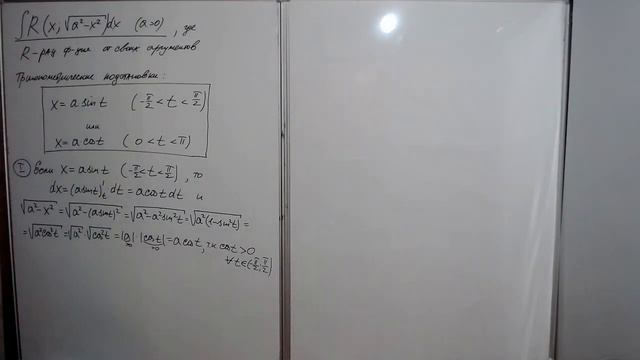 ∫R(x, √a²-x²)dx (a>0), где
R-рац ф-ция от своих аргументов
Тригонометрические подстановки:
x = a sin t (-π/2 < t < π/2)
или
x = a cos t (0 < t < π)
I Если x = a sin t (-π/2 < t < π/2), то
dx = (a sin t)'ₜ dt = a cos t dt и
√a²-x² = √a²-(a sin t)² = √a²-a² sin² t = √a²(1-sin² t) =
= √a² cos² t = √a² · √cos² t = |a| · |cos t| = a cos t, т.к. cos t > 0
∀ t ∈ (-π/2; π/2)